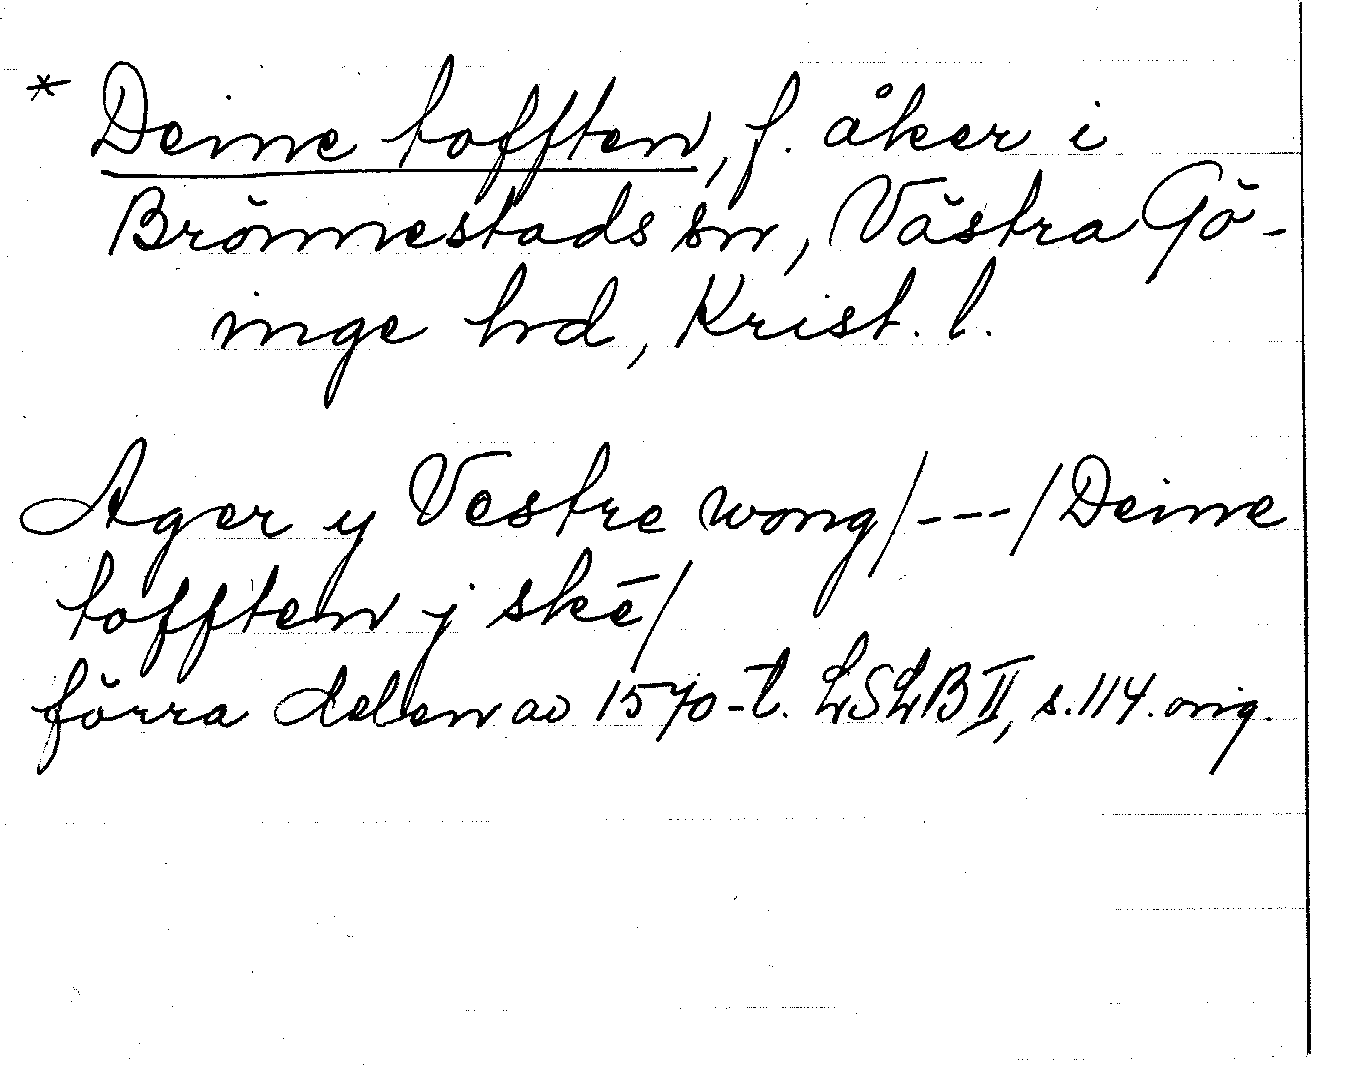 * Deine tofften, f. åker i
Brönnestads sn, Västra Gö-
inge hd, Krist. l.
Ager y Vestre wong/---/Deine
tofften j skē/
förra delen av 1570-t. LSLB II, s. 114. orig.